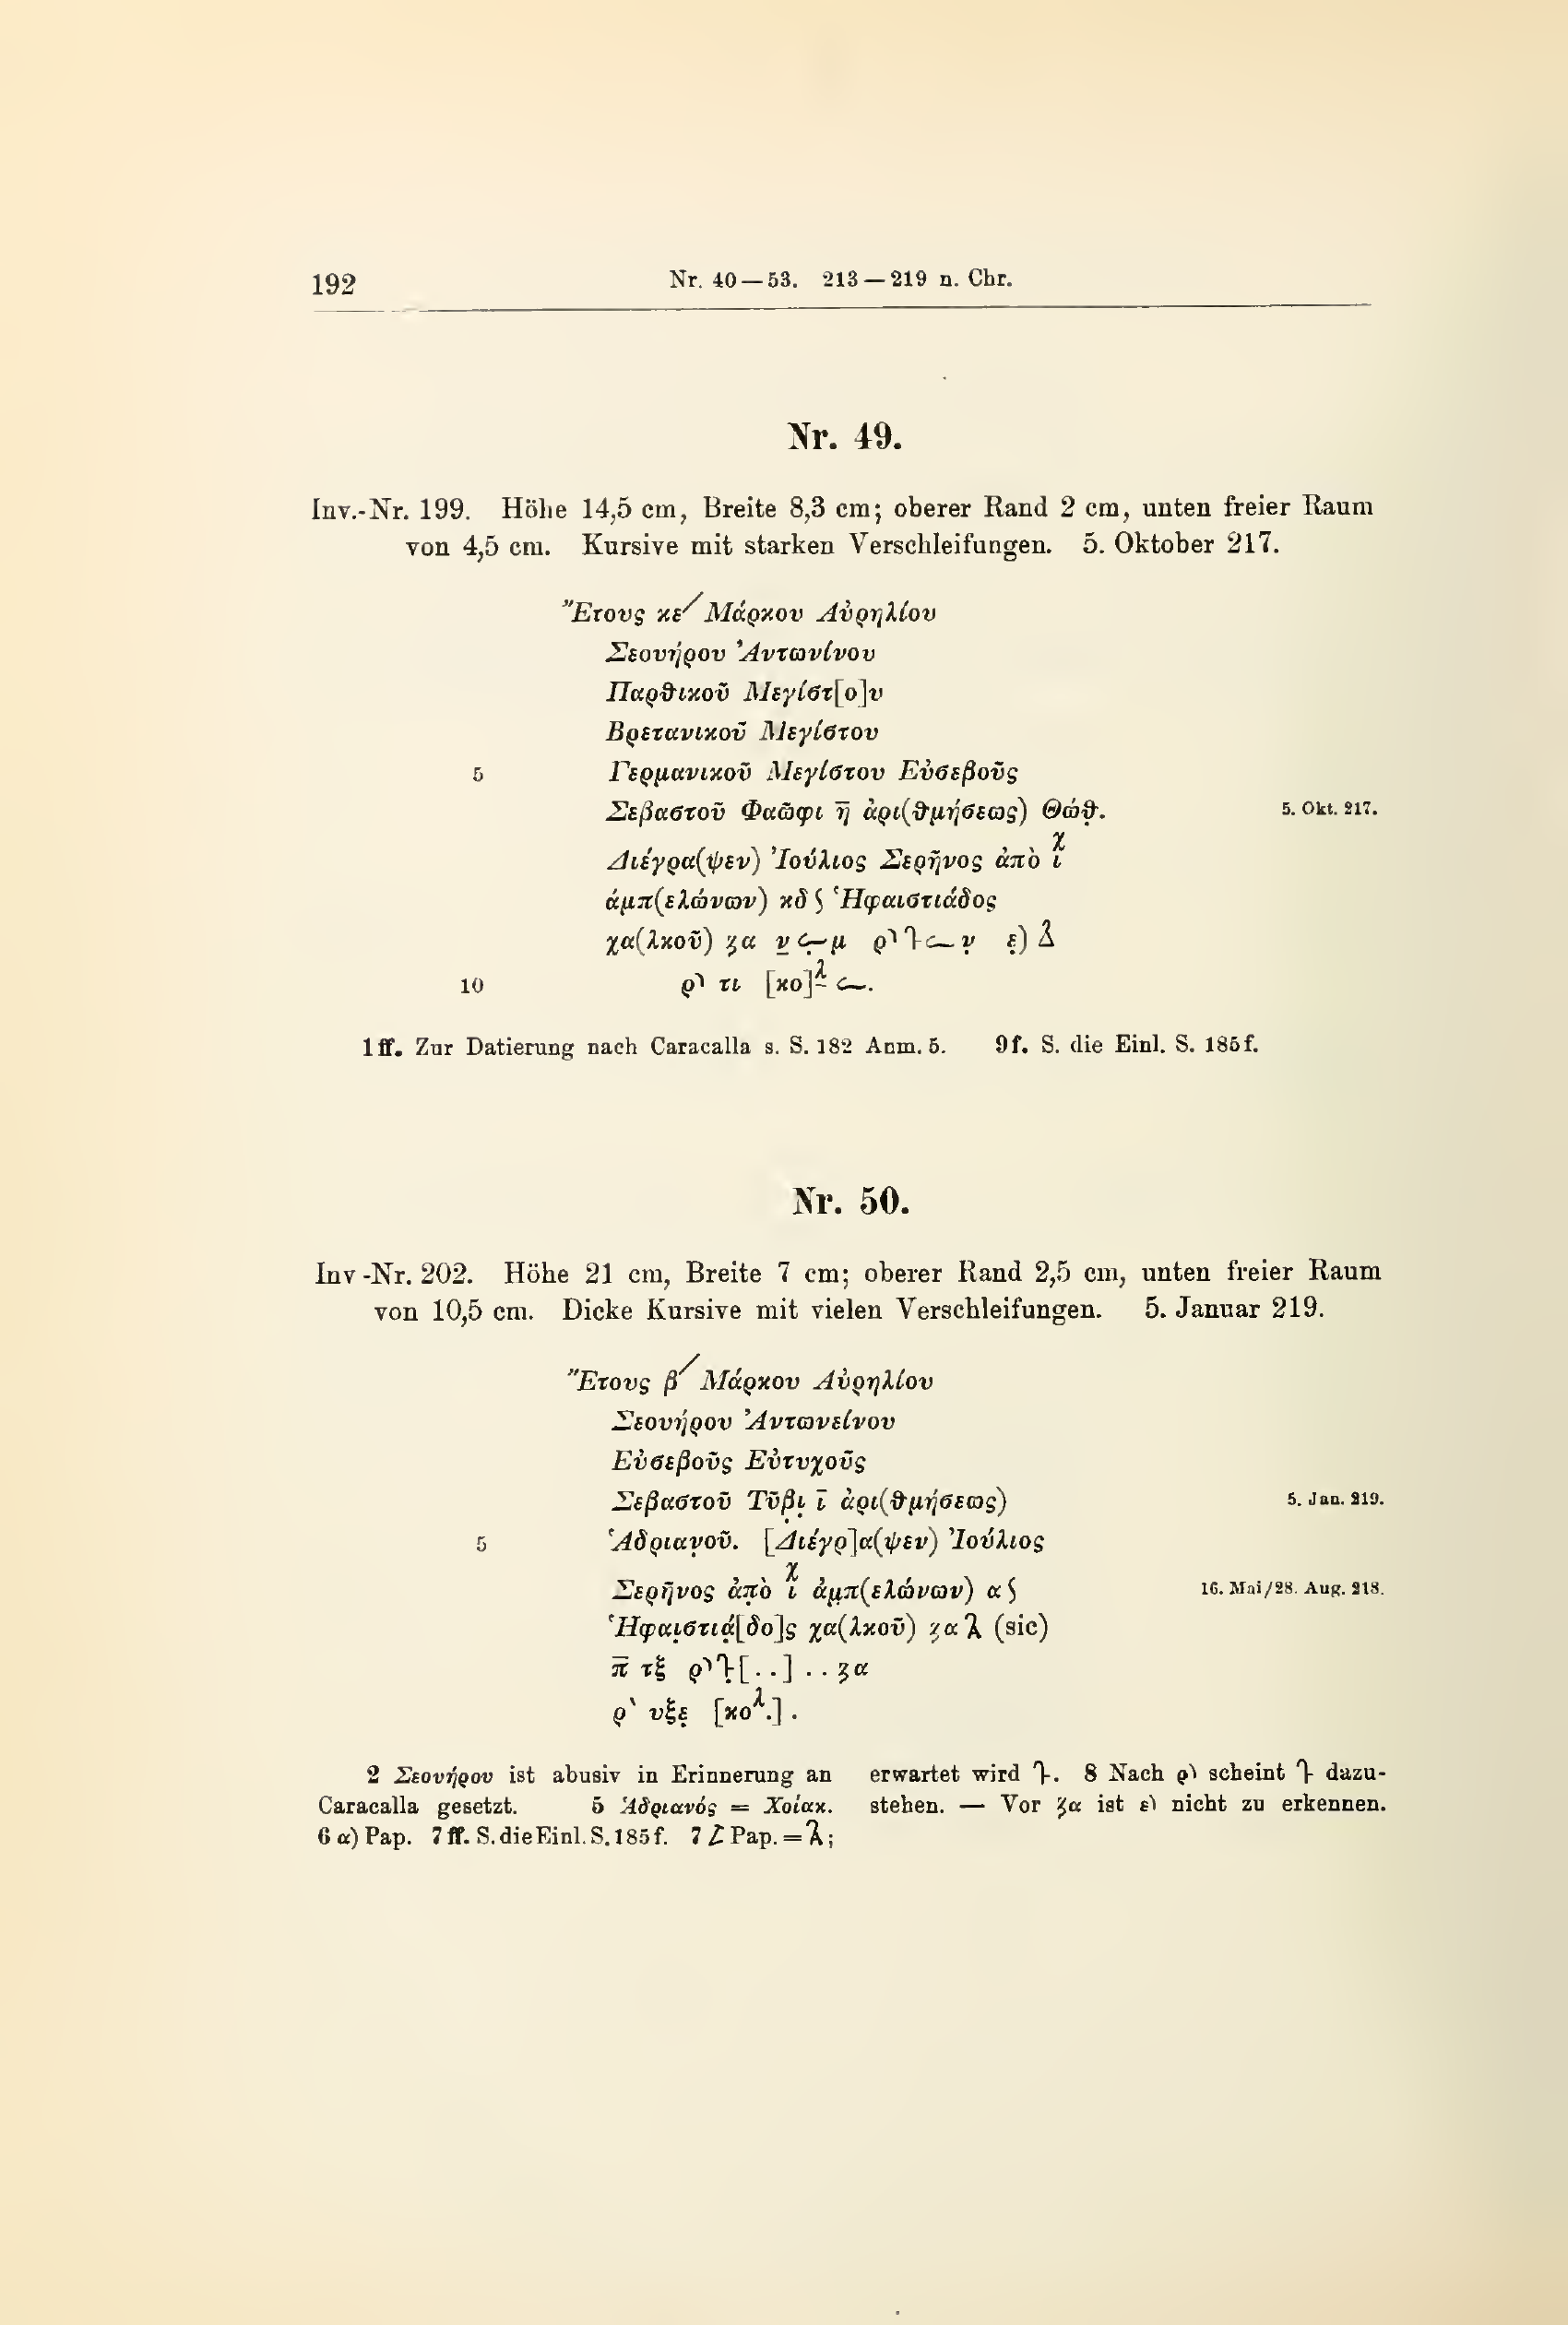 192
Nr. 40—53. 213—219 n. Chr.
Nr. 49.
Inv.-Nr. 199. Höhe 14,5 cm, Breite 8,3 cm; oberer Rand 2 cm, unten freier Raum
von 4,5 cm. Kursive mit starken Verschleifungen. 5. Oktober 217.
Ἔτους κε/ Μάρκου Αὐρηλίου
Σεουήρου Ἀντωνίνου
Παρθικοῦ Μεγίστ[ο]υ
Βρετανικοῦ Μεγίστου
5 Γερμανικοῦ Μεγίστου Εὐσεβοῦς
Σεβαστοῦ Φαῶφι η̄ ἀρι(θμήσεως) Θώθ̣. 5. Okt. 217.
Διέγρα(ψεν) Ἰούλιος Σερῆνος ἀπὸ ιˣ
ἀμπ(ελώνων) κδ ϛ Ἡφαιστιάδος
χα(λκοῦ) ʒα
10 τι [κο]λ
1 ff. Zur Datierung nach Caracalla s. S. 182 Anm. 5. 9 f. S. die Einl. S. 185 f.
Nr. 50.
Inv-Nr. 202. Höhe 21 cm, Breite 7 cm; oberer Rand 2,5 cm, unten freier Raum
von 10,5 cm. Dicke Kursive mit vielen Verschleifungen. 5. Januar 219.
Ἔτους β/ Μάρκου Αὐρηλίου
Σεουήρου Ἀντωνείνου
Εὐσεβοῦς Εὐτυχοῦς
Σεβαστοῦ Τῦβι̣ ῑ ἀρι(θμήσεως) 5. Jan. 219.
5 Ἁδριαν̣οῦ. [Διέγρ]α(ψεν) Ἰούλιος
Σερῆνος ἀπ̣ὸ ιˣ ἀμ̣π(ελώνων) α ϛ 16. Mai/28. Aug. 218.
Ἡφαι̣στιά̣[δο]ς χα(λκοῦ) ʒα (sic)
π̄ τξ [..] . . ʒα
υξε̣ [κολ.] .
2 Σεουήρου ist abusiv in Erinnerung an
Caracalla gesetzt. 5 Ἁδριανός = Χοίακ.
6 α) Pap. 7 ff. S. die Einl. S. 185 f. 7 Pap. =
erwartet wird. 8 Nach scheint dazu-
stehen. — Vor ʒα ist nicht zu erkennen.